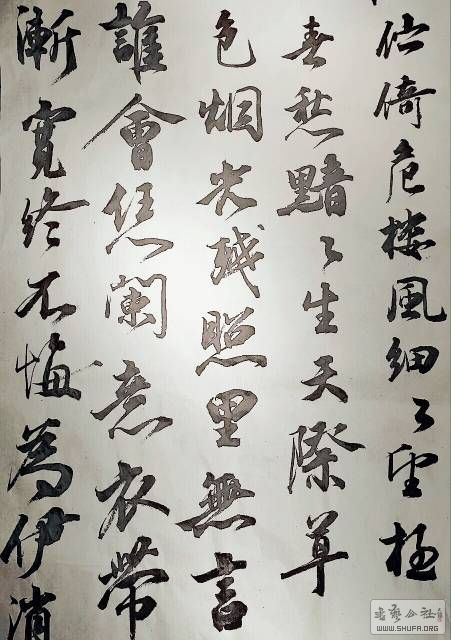 伫倚危楼風細々望極
春愁黯々生天際草
色烟光残照里無言
誰會凭闌意衣帶
漸寬终不悔為伊消
書藝公社
WWW.SHUFA.ORG